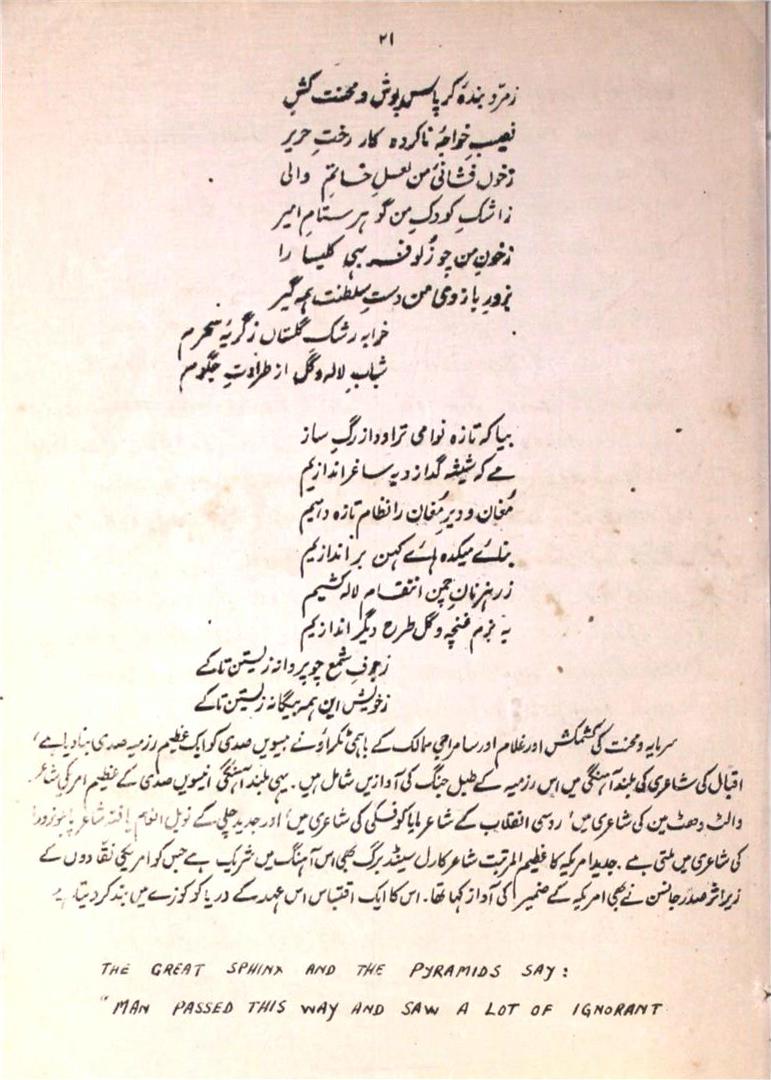 ۲۱
زمرد بندهٔ کرپاس پوش و محنت کش
نصیبِ خواجۂ ناکردہ کار رختِ حریر
زخوں فشانیٔ من لعلِ خاتمِ والی
زاشکِ کودکِ من گوہرِ ستامِ امیر
زخونِ من چو زلو فربہی کلیسا را
بزورِ بازوی من دستِ سلطنت ہمہ گیر
خرابہ رشکِ گلستاں زگریۂ سحرم
شبابِ لالہ و گل از طراوتِ جگرم
بیا کہ تازہ نوا می تراود از رگِ ساز
مے کہ شیشہ گدازد بہ ساغر اندازیم
مُغان و دیرِ مُغان را نظامِ تازہ دہیم
بنائے میکدہ ہائے کہن بر اندازیم
زرہزنانِ چمن انتقامِ لالہ کشیم
بہ بزمِ غنچہ و گل طرحِ دیگر اندازیم
زطوفِ شمع چو پروانہ زیستن تاکے
زخویش این ہمہ بیگانہ زیستن تاکے
سرمایہ و محنت کی کشمکش اور غلام اور سامراجی ممالک کے باہمی ٹکراؤ نے بیسویں صدی کو ایک عظیم رزمیہ صدی بنا دیا ہے،
اقبال کی شاعری کی بلند آہنگی میں اس رزمیہ کے طبلِ جنگ کی آوازیں شامل ہیں۔ یہی بلند آہنگی انیسویں صدی کے عظیم امریکی شاعر
والٹ وھٹ مین کی شاعری میں، روسی انقلاب کے شاعر مایا کوفسکی کی شاعری میں، اور جدید چلی کے نوبل انعام یافتہ شاعر پابلو نرودا
کی شاعری میں ملتی ہے۔ جدید امریکہ کا عظیم المرتبت شاعر کارل سینڈ برگ بھی اس آہنگ میں شریک ہے جس کو امریکی نقادوں کے
زیر اثر صدر جانسن نے بھی امریکہ کے ضمیر کی آواز کہا تھا۔ اس کا ایک اقتباس اس عہد کے دریا کو کوزے میں بند کر دیتا ہے
THE GREAT SPHINX AND THE PYRAMIDS SAY:
"MAN PASSED THIS WAY AND SAW A LOT OF IGNORANT